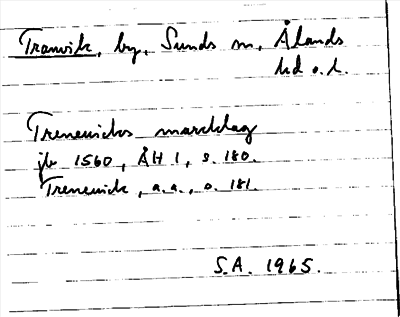 Tranvik, by, Sunds sn, Ålands
hd o. l.
Trenewicks marcklag
jb 1560, ÅH 1, s. 180.
Trenewick, a.a., s. 181.
S.A. 1965.